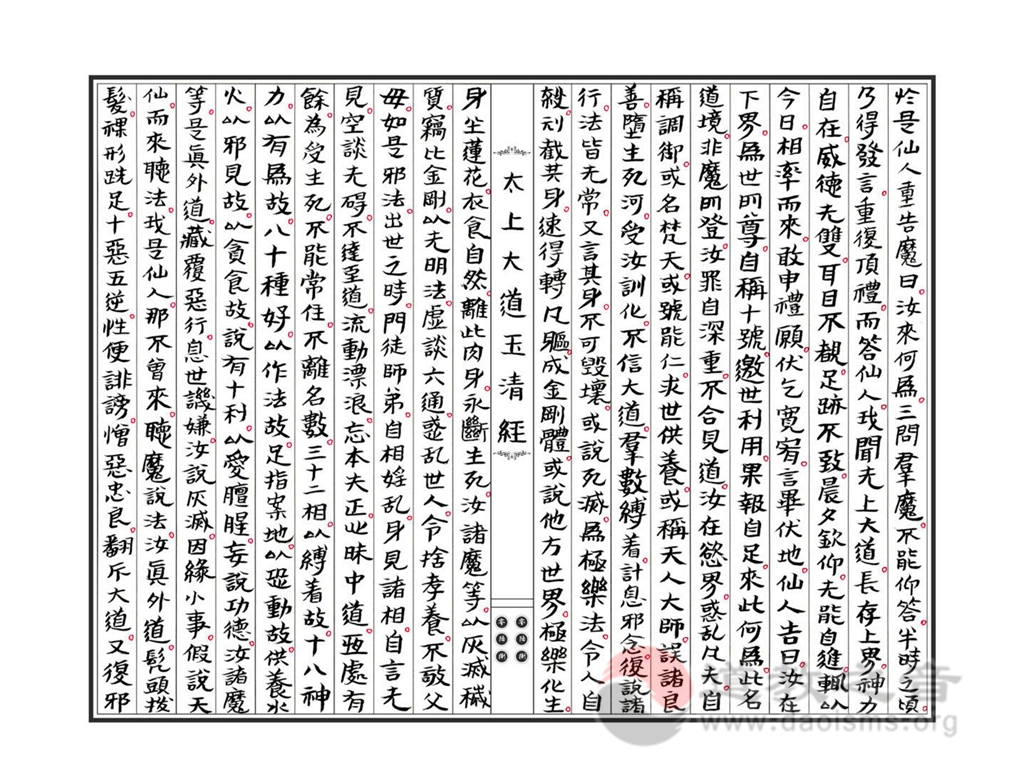 扵是仙人重告魔曰汝來何為三問羣魔不能仰答半時之頃
乃得發言重復頂禮而答仙人我聞无上大道長存上界神力
自在威德无雙耳目不覩足跡不致晨夕欽仰无能自進輒以
今日相率而來敢申禮願伏乞寬宥言畢伏地仙人告曰汝在
下界為世所尊自稱十號邀世利用果報自足來此何為此名
道境非魔所登汝罪自深重不合見道汝在慾界惑乱凡夫自
稱調御或名梵天或號能仁求世供養或稱天人大師誤諸良
善墮生死河受汝訓化不信大道羣數縛着計息邪念復說諸
行法皆无常又言其身不可毀壞或說死滅為極樂法令人自
殺刑截其身速得轉凡軀成金剛體或說他方世界極樂化生
太上大道玉清經
身坐蓮花衣食自然離此肉身永斷生死汝諸魔等以灰滅穢
質竊比金剛以无明法虛談六通惑乱世人令捨孝養不敬父
母如是邪法出世之時門徒師弟自相婬乱身見諸相自言无
見空談无碍不達至道流動漂浪忘本失正此昧中道㢠處有
餘為受生死不能常住不離名數三十二相以縛着故十八神
力以有為故八十種好以作法故足指案地以恐動故供養水
火以邪見故以貪食故說有十利以愛膻腥妄說功德汝諸魔
等是真外道藏覆惡行息世譏嫌汝說灰滅因緣小事假說天
仙而來聽法我是仙人那不曾來聽魔說法汝真外道髡頭拔
髮裸形跣足十惡五逆性便誹謗憎惡忠良翻斥大道又復邪
道教之音
www.daoisms.org